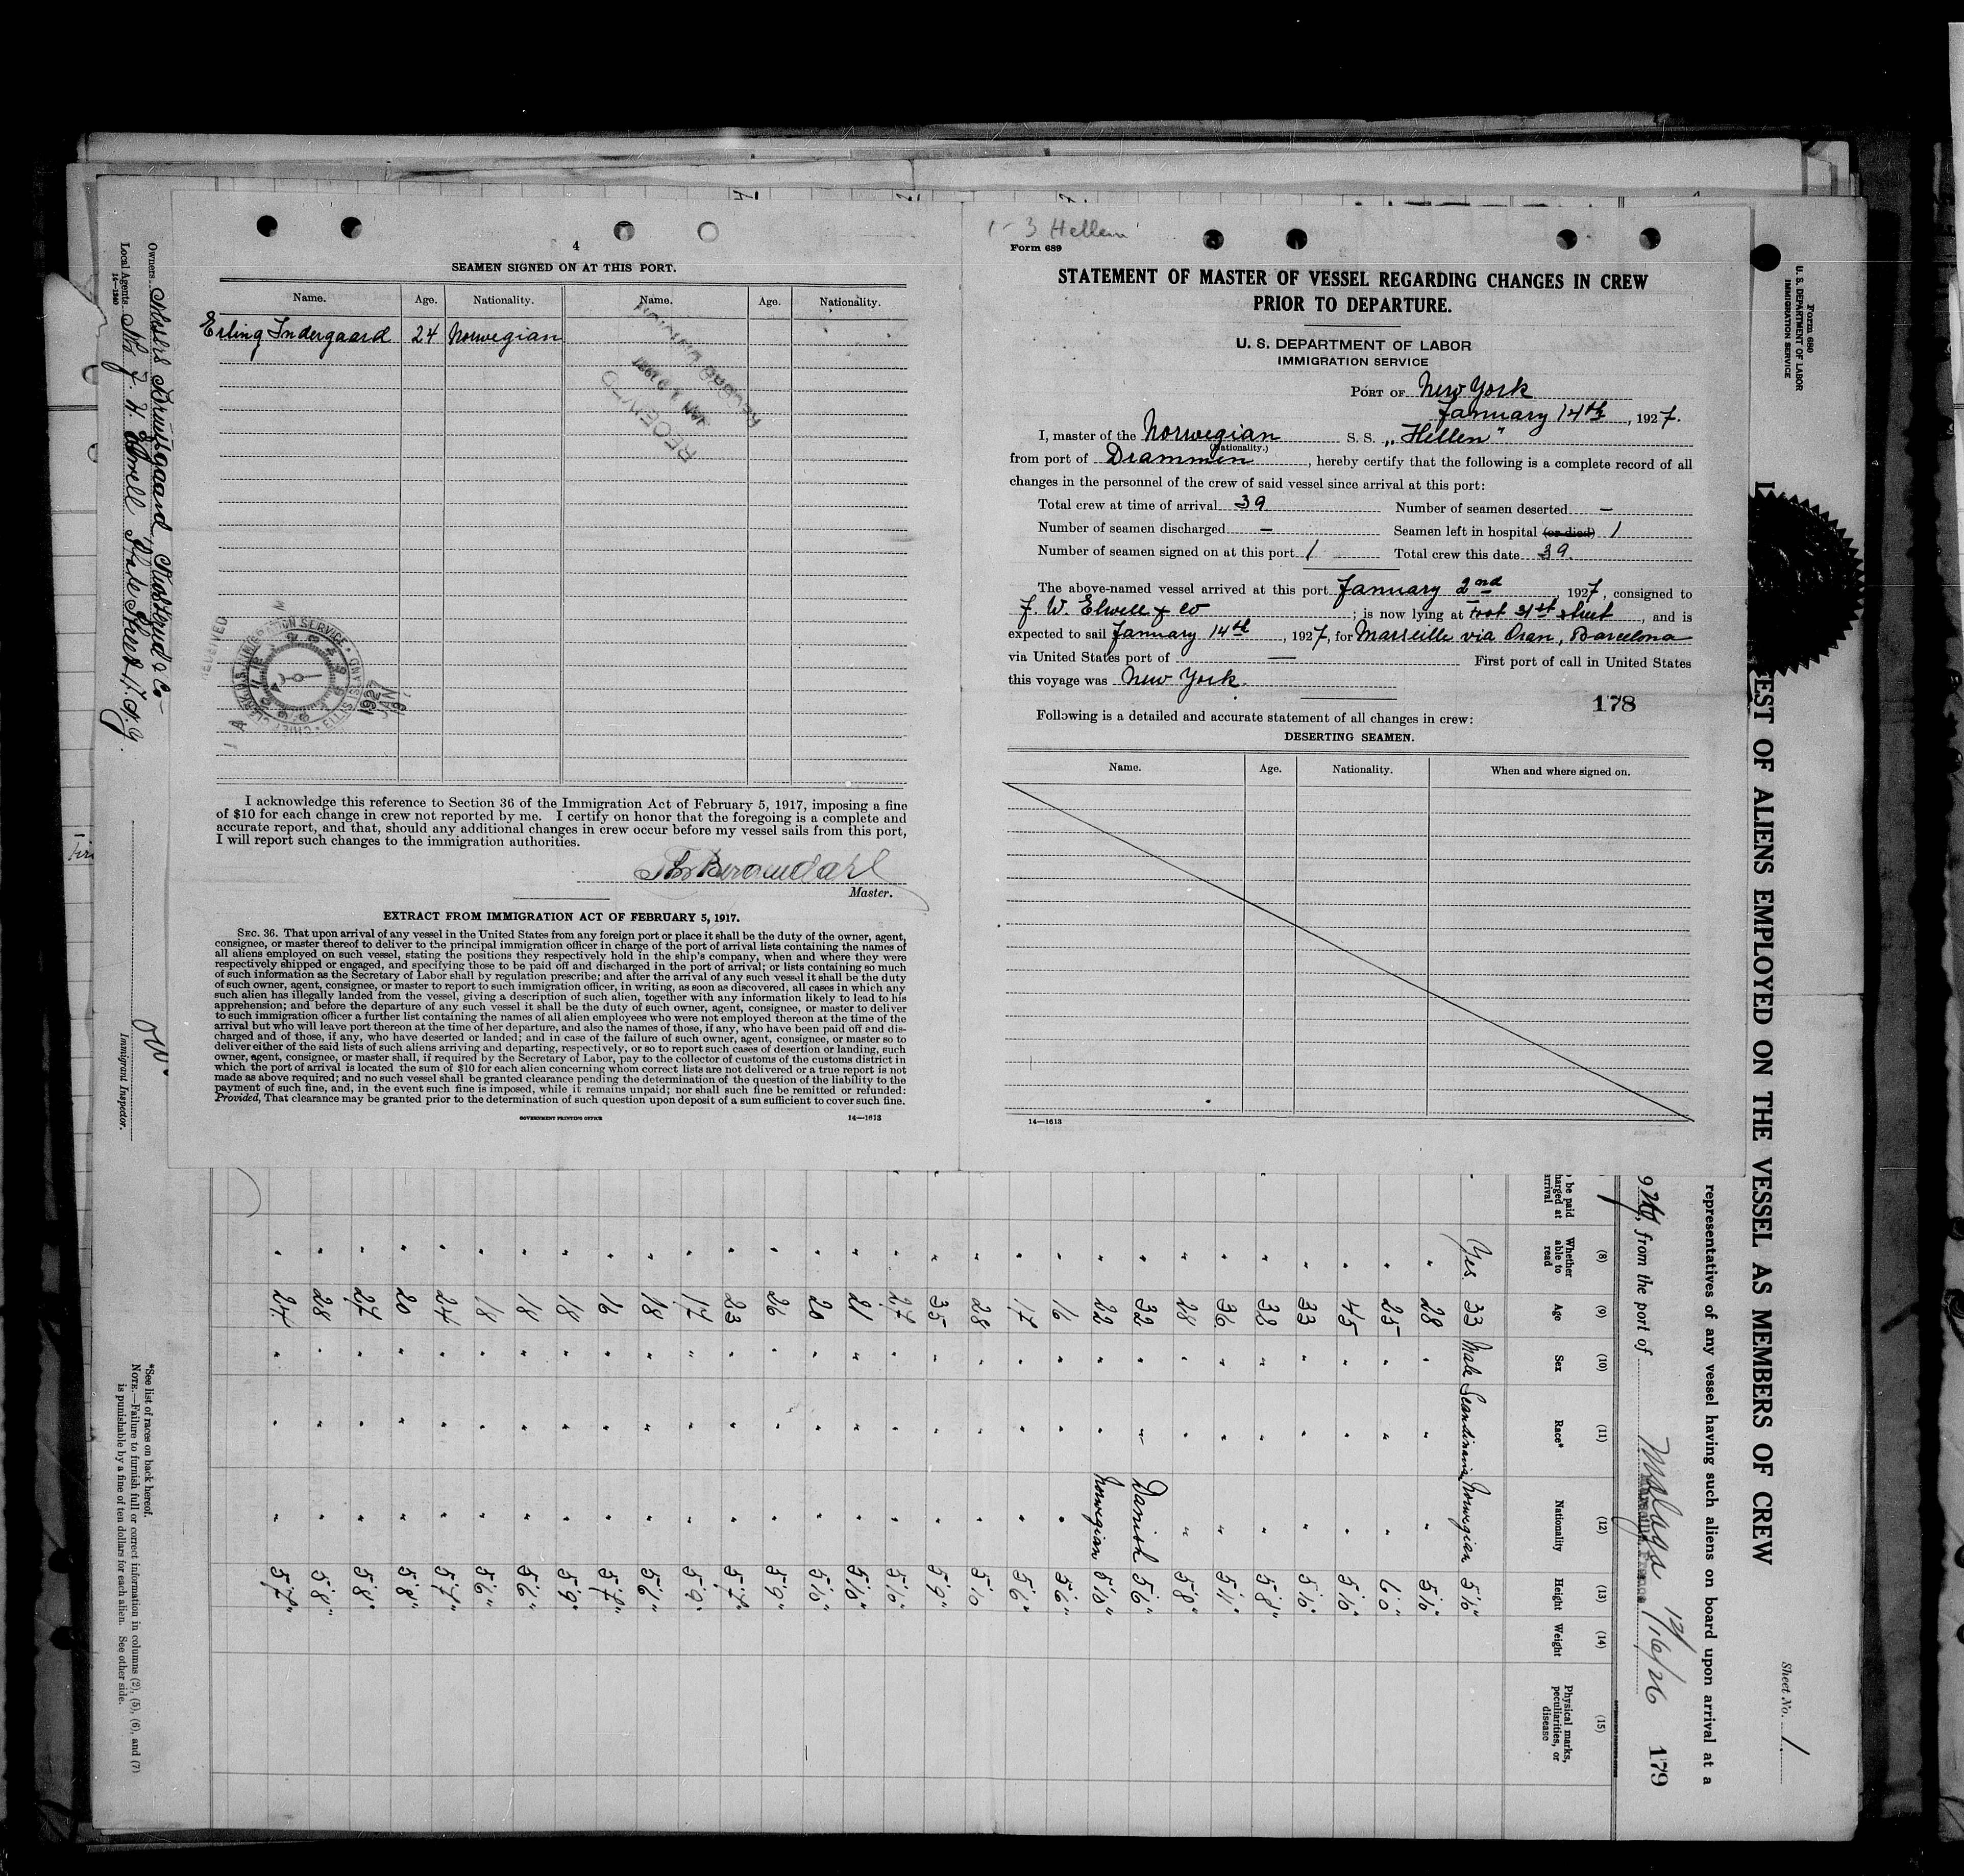 4
SEAMEN SIGNED ON AT THIS PORT.
Name. Age. Nationality. Name. Age. Nationality.
Erling Indergaard 24 Norwegian
RECEIVED
RECEIVED
CHIEF CLERK U.S. IMMIGRATION SERVICE · ELLIS ISLAND
JAN
1927
I acknowledge this reference to Section 36 of the Immigration Act of February 5, 1917, imposing a fine
of $10 for each change in crew not reported by me. I certify on honor that the foregoing is a complete and
accurate report, and that, should any additional changes in crew occur before my vessel sails from this port,
I will report such changes to the immigration authorities.
Master.
EXTRACT FROM IMMIGRATION ACT OF FEBRUARY 5, 1917.
SEC. 36. That upon arrival of any vessel in the United States from any foreign port or place it shall be the duty of the owner, agent,
consignee, or master thereof to deliver to the principal immigration officer in charge of the port of arrival lists containing the names of
all aliens employed on such vessel, stating the positions they respectively hold in the ship's company, when and where they were
respectively shipped or engaged, and specifying those to be paid off and discharged in the port of arrival; or lists containing so much
of such information as the Secretary of Labor shall by regulation prescribe; and after the arrival of any such vessel it shall be the duty
of such owner, agent, consignee, or master to report to such immigration officer, in writing, as soon as discovered, all cases in which any
such alien has illegally landed from the vessel, giving a description of such alien, together with any information likely to lead to his
apprehension; and before the departure of any such vessel it shall be the duty of such owner, agent, consignee, or master to deliver
to such immigration officer a further list containing the names of all alien employees who were not employed thereon at the time of the
arrival but who will leave port thereon at the time of her departure, and also the names of those, if any, who have been paid off and dis-
charged and of those, if any, who have deserted or landed; and in case of the failure of such owner, agent, consignee, or master so to
deliver either of the said lists of such aliens arriving and departing, respectively, or so to report such cases of desertion or landing, such
owner, agent, consignee, or master shall, if required by the Secretary of Labor, pay to the collector of customs of the customs district in
which the port of arrival is located the sum of $10 for each alien concerning whom correct lists are not delivered or a true report is not
made as above required; and no such vessel shall be granted clearance pending the determination of the question of the liability to the
payment of such fine, and, in the event such fine is imposed, while it remains unpaid; nor shall such fine be remitted or refunded:
Provided, That clearance may be granted prior to the determination of such question upon deposit of a sum sufficient to cover such fine.
GOVERNMENT PRINTING OFFICE 14—1613
1-3 Hellem
Form 689
STATEMENT OF MASTER OF VESSEL REGARDING CHANGES IN CREW
PRIOR TO DEPARTURE.
U. S. DEPARTMENT OF LABOR
IMMIGRATION SERVICE
PORT OF New York
January 14th, 1927.
I, master of the Norwegian S. S. „Hellen"
(Nationality.)
from port of Drammen, hereby certify that the following is a complete record of all
changes in the personnel of the crew of said vessel since arrival at this port:
Total crew at time of arrival 39 Number of seamen deserted —
Number of seamen discharged — Seamen left in hospital (or died) 1
Number of seamen signed on at this port 1 Total crew this date 39.
The above-named vessel arrived at this port January 2nd, 1927, consigned to
F. W. Elwell & Co; is now lying at Foot 31st street, and is
expected to sail January 14th, 1927, for Marseille via Oran, Barcelona
via United States port of — First port of call in United States
this voyage was New York.
178
Following is a detailed and accurate statement of all changes in crew:
DESERTING SEAMEN.
Name. Age. Nationality. When and where signed on.
14—1613
Form 680
U. S. DEPARTMENT OF LABOR
IMMIGRATION SERVICE
Sheet No. 1
EST OF ALIENS EMPLOYED ON THE VESSEL AS MEMBERS OF CREW
representatives of any vessel having such aliens on board upon arrival at a
, from the port of Malaga 12/16/26 179
be paid
harged at
arrival
(8) (9) (10) (11) (12) (13) (14) (15)
Whether able to read Age Sex Race* Nationality Height Weight Physical marks, peculiarities, or disease
Yes. 33 Male Scandinavia Norwegian 5'10"
" 28 " " " 5'10"
" 25 " " " 6'0"
" 45 " " " 5'10"
" 33 " " " 5'10"
" 32 " " " 5'8"
" 36 " " " 5'11"
" 28 " " " 5'8"
" 32 " " Danish 5'6"
" 22 " " Norwegian 5'10"
" 16 " " " 5'6"
" 17 " " " 5'6"
" 28 " " " 5'10
" 35 " " " 5'9"
" 27 " " " 5'10"
" 21 " " " 5'10"
" 20 " " " 5'10"
" 26 " " " 5'9"
" 23 " " " 5'7"
" 17 " " " 5'9"
" 18 " " " 5'6"
" 16 " " " 5'7"
" 18 " " " 5'9"
" 18 " " " 5'6"
" 18 " " " 5'6"
" 24 " " " 5'7"
" 20 " " " 5'8"
" 27 " " " 5'8"
" 28 " " " 5'8"
" 24 " " " 5'7"
Owners
Local Agents
14—1240
Immigrant Inspector.
*See list of races on back hereof.
NOTE.—Failure to furnish full or correct information in columns (2), (5), (6), and (7)
is punishable by a fine of ten dollars for each alien. See other side.